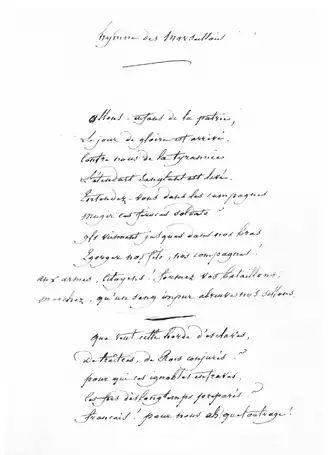 hymne des Marseillois
allons enfans de la patrie,
Le jour de gloire est arrivé.
Contre nous de la tyrannie
L'étendart sanglant est levé.
Entendez-vous dans les campagnes
Mugir ces féroces soldats?
Ils viennent jusques dans nos bras
Egorger nos fils, nos compagnes!
aux armes, citoyens! formez vos bataillons.
marchez, qu'un sang impur abreuve nos sillons.
que veut cette horde d'esclaves,
De traîtres, de Rois conjurés?
pour qui ces ignobles entraves,
ces fers dès longtemps préparés?
français! pour nous ah quel outrage!